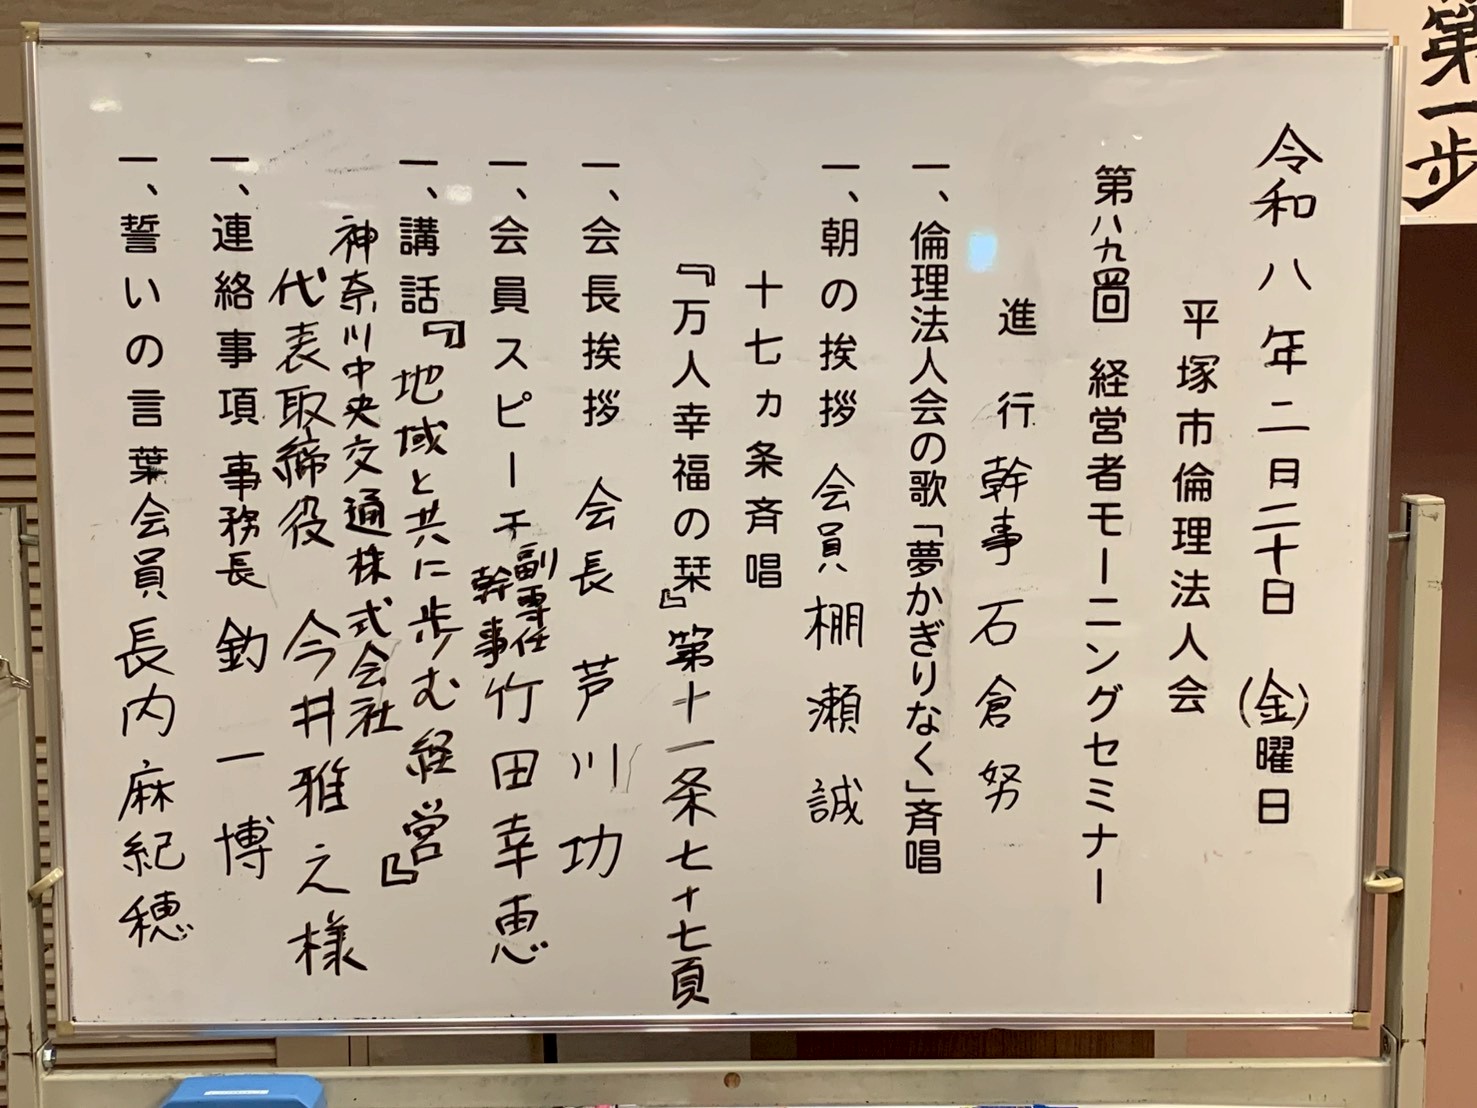 第一歩
令和八年二月二十日　(金)曜日
平塚市倫理法人会
第八九四回　経営者モーニングセミナー
進行　幹事　石倉　努
一、倫理法人会の歌「夢かぎりなく」斉唱
一、朝の挨拶　会員　棚瀬　誠
十七カ条斉唱
『万人幸福の栞』第十一条七十七頁
一、会長挨拶　会長　芦川　功
一、会員スピーチ　副専任幹事　竹田幸恵
一、講話『地域と共に歩む経営』
神奈川中央交通株式会社
代表取締役　今井雅之様
一、連絡事項　事務長　釣　一博
一、誓いの言葉　会員　長内麻紀穂